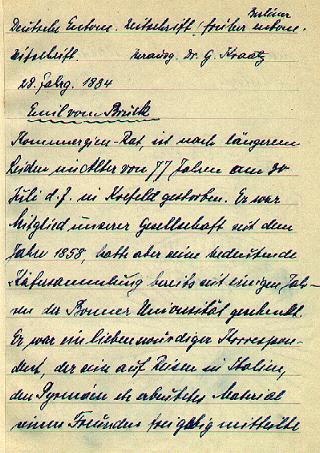 Berliner
Deutsche Entom. Zeitschrift / früher entom.
Zeitschrift. Herausg. Dr. G. Kraatz
28. Jahrg. 1884
Emil vom Bruck
Kommerzien-Rat, ist nach längerem
Leiden im Alter von 77 Jahren am 30
Juli d. J. in Krefeld gestorben. Er war
Mitglied unserer Gesellschaft seit dem
Jahre 1858, hatte aber seine bedeutende
Käfersammlung bereits seit einigen Jah-
ren der Bonner Universität geschenkt.
Er war ein liebenswürdiger Korrespon-
dent, der sein auf Reisen in Italien,
den Pyrenäen etc erbeutetes Material
seinen Freunden freigebig mitteilte